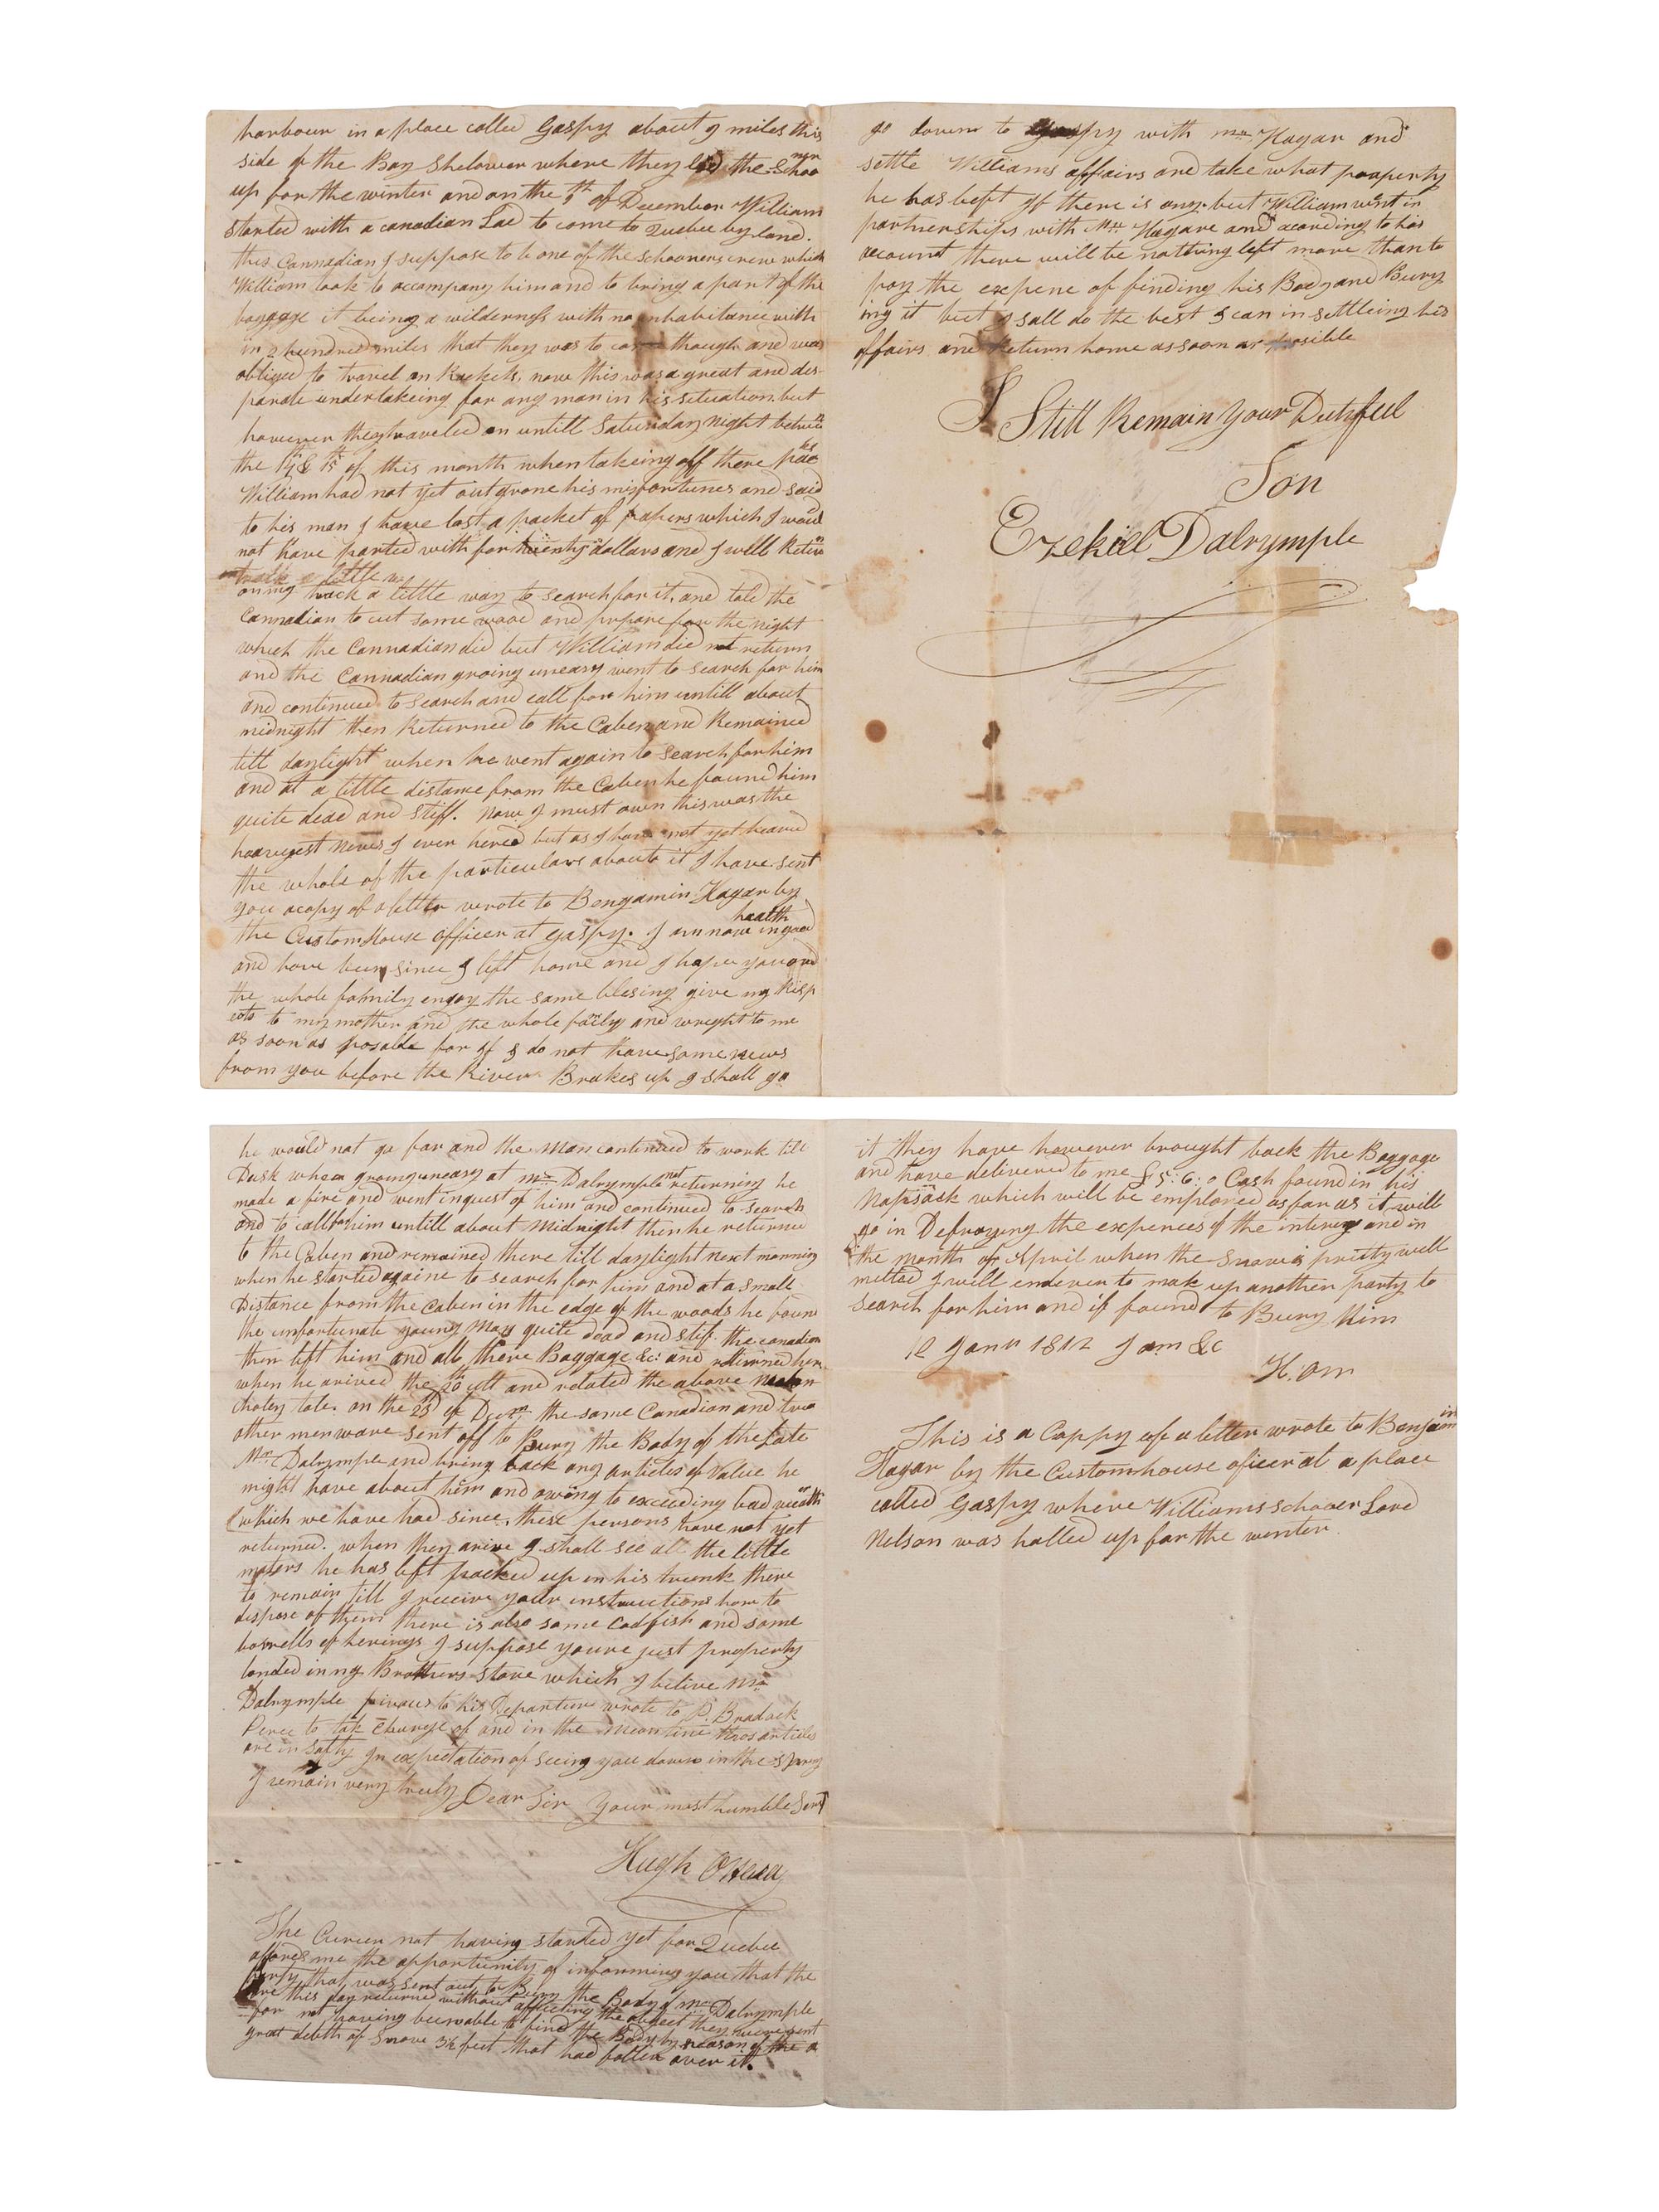 harbour in a place called Gaspy about 9 miles this
side of the Bay Shelower where they laid the Schoo
ner
up for the winter and on the of December William
started with a canadian Lad to come to Quebec by land.
this Cannadian I suppose to be one of the Schooners crew which
William took to accompany him and to bring a part of the
baggage it being a wilderness with no inhabitance with
in 2 hundred miles that they was to come though and was
obliged to travel on Rackets, now this was a great and des-
parate undertakeing for any man in his situation but
however they traveled on untill Saturday night between
the 14 & 15 of this month when takeing off there pac
ks
William had not yet out grone his misfortunes and said
to his man I have lost a packet of papers which I would
not have parted with for twenty dollars and I will Retur
back a little way to search for it, and told the
Cannadian to cut some wood and prepare for the night
which the Cannadian did but William did not return
and the Cannadian groing uneasy went to search for him
and continued to search and call for him untill about
midnight then Returned to the Caben and Remained
till daylight when he went again to search for him
and at a little distance from the Caben he found him
quite dead and stiff. Now I must own this was the
heaviest news I ever hered but as I have not yet heared
the whole of the particulars about it I have sent
you a copy of a letter wrote to Bengamin Hagar by
the Custom House officer at Gaspy. I am now in good
health
and have been since I left home and I hope you and
the whole family enjoy the same blesing give my Resp
ects to my mother and the whole faily and wright to me
as soon as posable for if I do not have some news
from you before the River Brakes up I shall go
go down to Gaspy with Mr Hagar and
settle Williams affairs and take what property
he has left if there is any but William went in
partnerships with Mr Hagare and acording to his
acount there will be nothing left more than to
pay the expene of finding his Body and Bury
ing it but I sall do the best I can in settleing his
affairs and Return home as soon as posible
I Still Remain your Dutyfull
Son
Ezekiel Dalrymple
he would not go far and the Man continued to work till
Dusk when groing uneasy at Mr Dalrymple not returning he
made a fire and went in quest of him and continued to search
and to call to him untill about midnight then he returned
to the Caben and remained there till daylight next morning
when he started againe to search for him and at a small
Distance from the Caben in the edge of the woods he foun
the unfortunate young Man quite dead and stif. the canadian
then left him and all there Baggage &c: and returned her
when he arived the 20 ult and related the above melan
choley tale. on the 23 of Decm. the same Canadian and two
other men ware sent off to Bury the Body of the Late
Mr Dalrymple and bring back any articles of Value he
might have about him and owing to exceeding bad weath
er
which we have had since, these persons have not yet
returned. when they arive I shall see all the little
maters he has left packed up in his trunk there
to remain till I receive your instructions how to
dispose of them there is also some Codfish and some
barrells of herings I suppose youre just property
landed in my Brothers store which I belive Mr
Dalrymple privous to his Departure wrote to P. Bradock
Perce to tak Charge of and in the meantime thos articles
are in safty In expectation of seeing you down in the spring
I remain very truly Dear Sir your most humble Servt
Hugh OHara
The Curier not having started yet for Quebec
afords me the opportunity of informing you that the
party that was sent out to Bury the Body of Mr Dalrymple
have this day returned without affecting the object they were sent
for not having been able to find the Body by reason of the
great debth of Snow 3½ feet that had fallen over it.
it they have however brought back the Baggage
and have delivered to me £5:6:0 Cash found in his
Napsack which will be employed as far as it will
go in Defraying the expences of the and in
the month of April when the Snow is pritty well
melted I will endever to mak up another party to
search for him and if found to Bury Him
12 Janu 1812 I am &c
H. OH
This is a Coppy of a letter wrote to Benjam
in
Hagar by the Customhouse oficer at a place
called Gaspy where Williams schooer Lord
Nelson was halled up for the winter